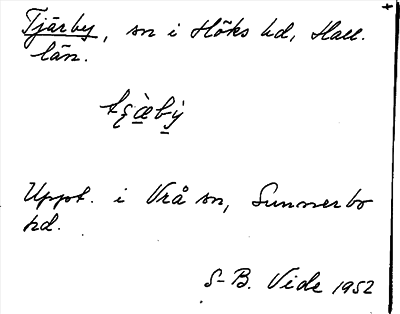 Tjärby, sn i Höks hd, Hall.
län.
Uppt. i Vrå sn, Sunnerbo
hd.
S-B. Vide 1952